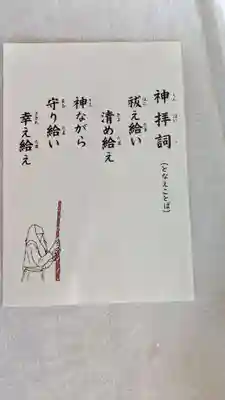 神拝詞
(となえことば)
祓え給い
清め給え
神ながら
守り給い
幸え給え